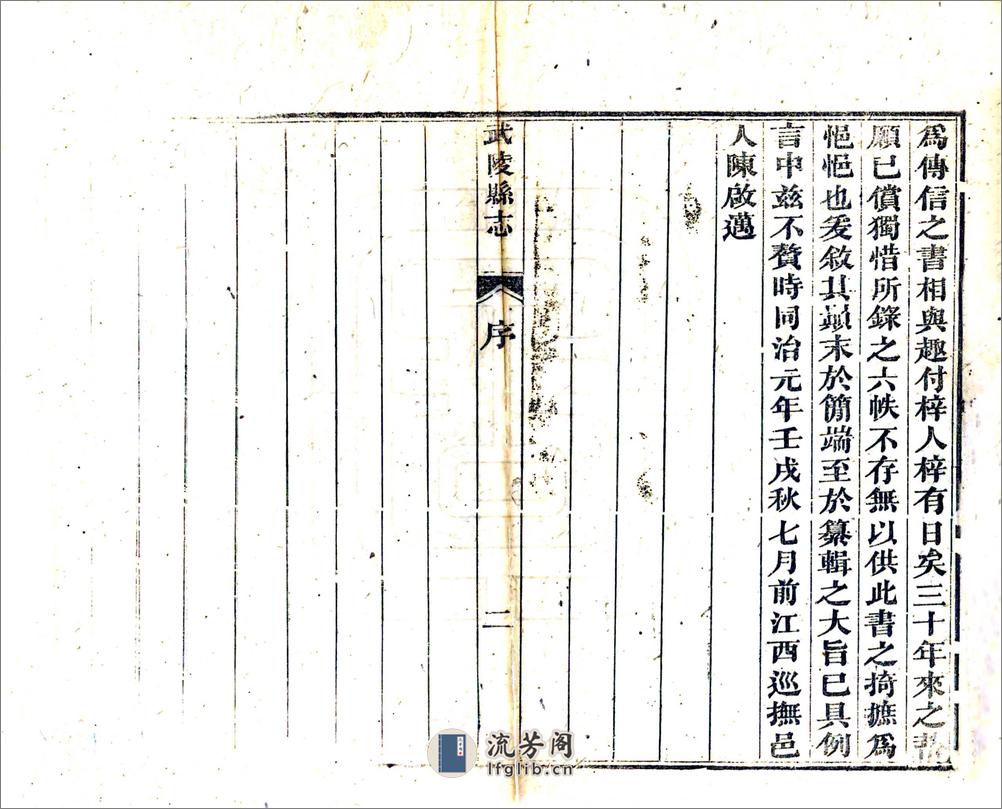 為傳信之書相與趣付梓人梓有日矣三十年來之
願已償獨惜所錄之六帙不存無以供此書之掎摭為
悒悒也爰敘其巔末於簡端至於纂輯之大旨已具例
言中茲不贅時同治元年壬戌秋七月前江西巡撫邑
人陳啟邁
武陵縣志
序
二
流芳阁
lfglib.cn